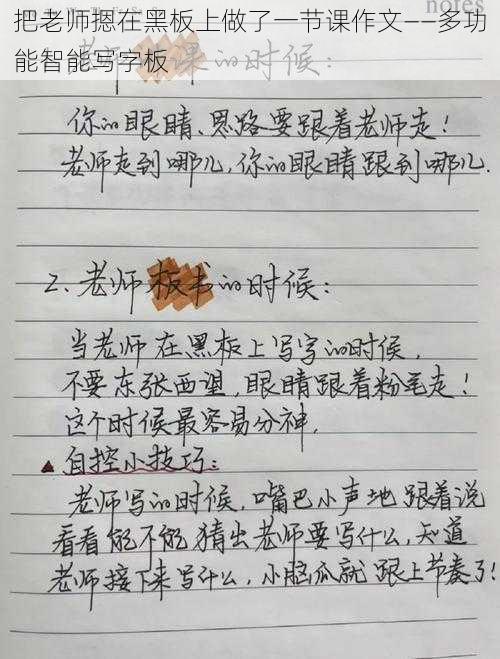 把老师摁在黑板上做了一节课作文——多功
能智能写字板
notes
课的时候：
你的眼睛、思路要跟着老师走！
老师走到哪儿，你的眼睛跟到哪儿.
2、老师板书的时候：
当老师在黑板上写字的时候，
不要东张西望，眼睛跟着粉笔走！
这个时候最容易分神.
▲自控小技巧：
老师写的时候，嘴巴小声地跟着说
看看能不能猜出老师要写什么，知道
老师接下来写什么，小脑瓜就跟上节奏了！